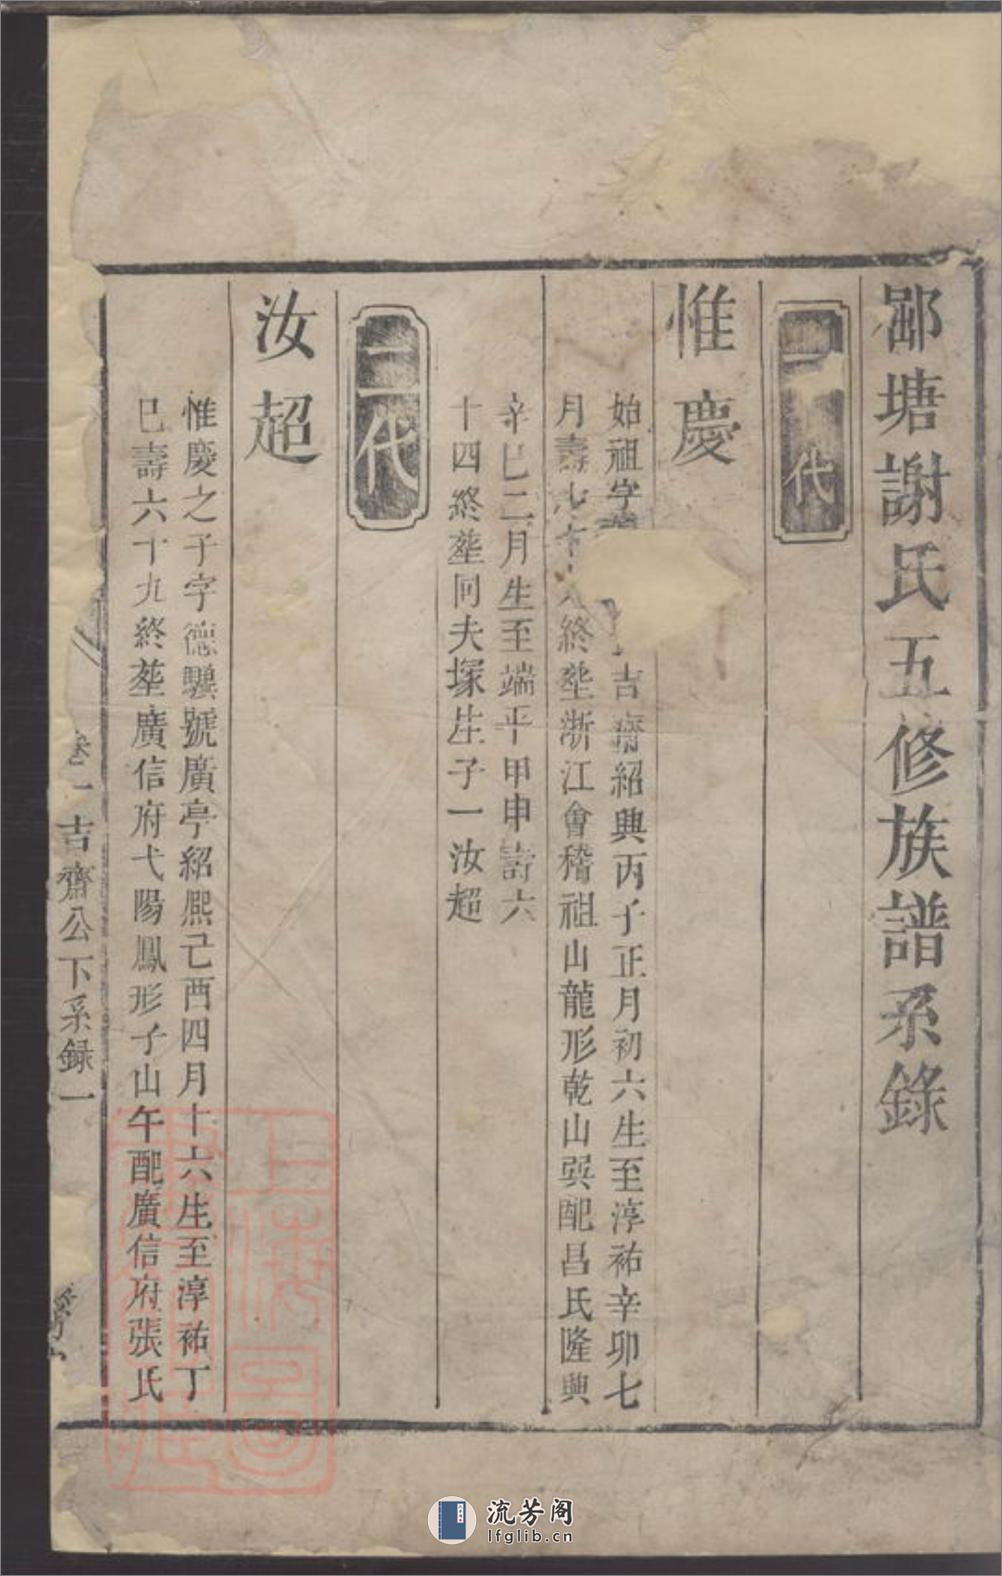 鄙塘謝氏五修族譜系錄
一代
惟慶
始祖字 吉齋紹興丙子正月初六生至淳祐辛卯七
月壽七十 終塟浙江會稽祖山龍形乾山巽配昌氏隆興
辛巳二月生至端平甲申壽六
十四終塟同夫塚生子一汝超
二代
汝超
惟慶之子字德驥號廣亭紹熙己酉四月十六生至淳祐丁
巳壽六十九終塟廣信府弋陽鳳形子山午配廣信府張氏
卷一 吉齋公下系録 一
上海圖
流芳阁
lfglib.cn